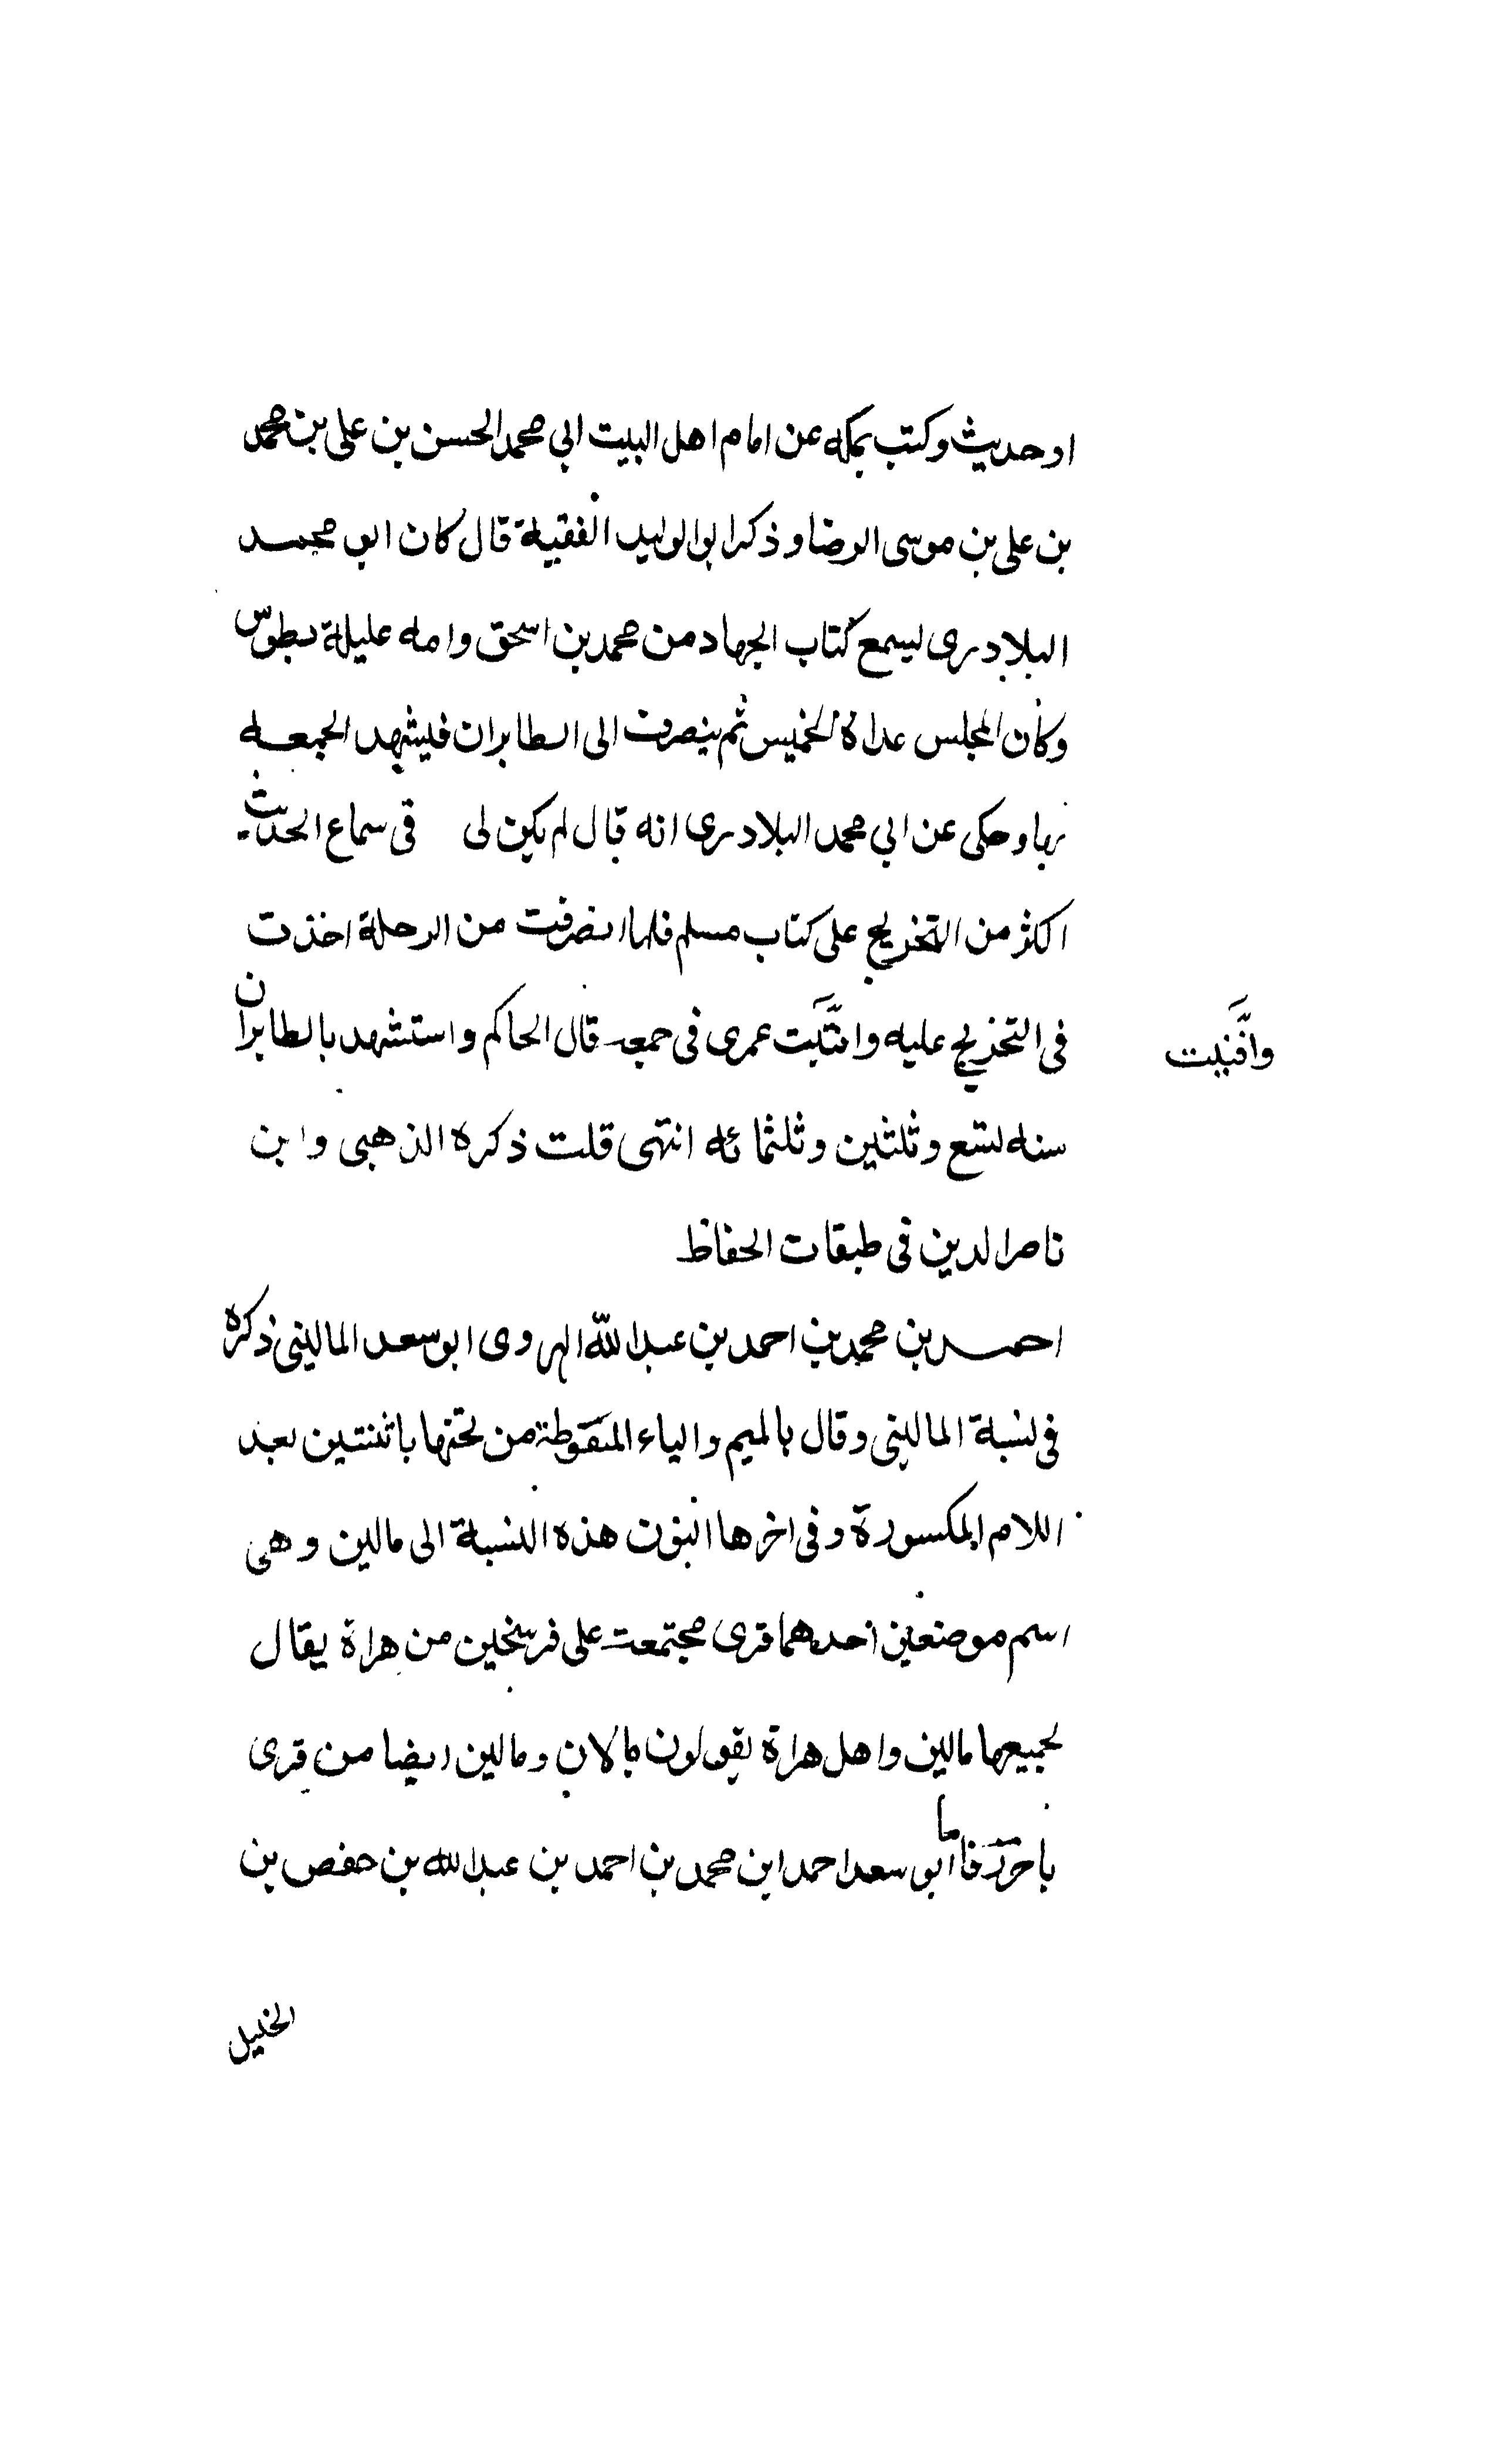 او حديث وكتب بمكه عن امام اهل البيت ابي محمد الحسن بن علي بن محمد
بن علي بن موسى الرضا و ذكر ابوالوليد الفقيه قال كان ابو محمد
البلاذرى ليسمع كتاب الجهاد من محمد بن اسحق وامه عليلة بطوس
وكان المجلس غداة الخميس ثم ينصرف الى الطابران فيشهد الجمعه
بها وحكى عن ابي محمد البلاذرى انه قال لم يكن لى فى سماع الحديث
اكثر من التخريج على كتاب مسلم فلما انصرفت من الرحلة اخذت
فى التخريج عليه وافنيت عمرى فى جمعه قال الحاكم واستشهد بالطابران
وافنيت
سنه تسع وثلثين وثلثمائه انتهى قلت ذكره الذهبى وابن
ناصر الدين فى طبقات الحفاظ
احمد بن محمد بن احمد بن عبد الله الهروى ابو سعد المالينى ذكره
فى نسبة المالينى وقال بالميم والياء المنقوطة من تحتها باثنتين بعد
اللام المكسورة وفى اخرها النون هذه النسبة الى مالين وهى
اسم موضعين احدهما قرى مجتمعة على فرسخين من هراة يقال
لجميعها مالين واهل هراة يقولون مالان ومالين ايضا من قرى
باخرز فاما ابو سعد احمد ابن محمد بن احمد بن عبد الله بن حفص بن
الخليل